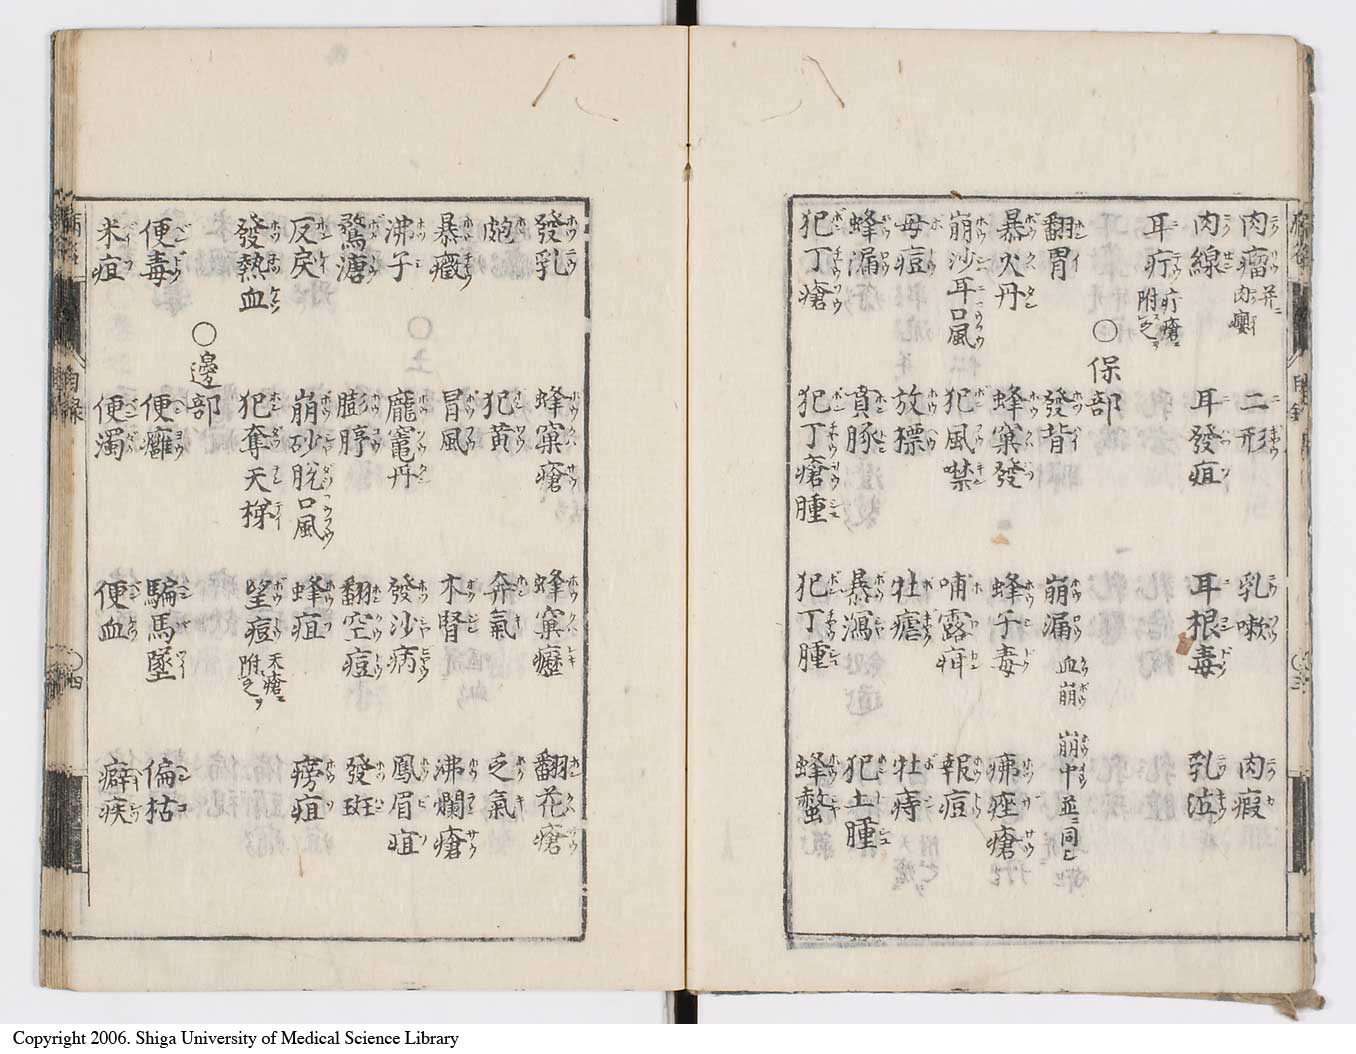 肉瘤 并ニ肉癭 二形 乳嗽 肉瘕
肉線 耳發疽 耳根毒 乳泣
耳疔 疔瘡ヱ附之ヲ
〇保部
翻胃 發背 崩漏 血崩 崩中並ニ同シ
暴火丹 蜂窠發 蜂子毒 疿痤瘡
崩沙耳口風 犯風噤 哺露疳
報痘
母痘 放標 牡瘧 牡痔
蜂漏 賁豚 暴瀉 犯土腫
犯丁瘡 犯丁瘡腫 犯丁腫 蜂螫
發乳 蜂窠瘡 蜂窠癧 翻花瘡
皰 犯黄 奔氣 乏氣
暴癥 冒風 木腎 沸爛瘡
沸子 龐竃丹 發沙病 鳳眉疽
鶩溏 膨脝 翻空痘 發斑
反戾 崩砂脫口風 蜂疽 䐔疽
發熱血 犯奪天梯 望痘 天瘡ヱ附之ヲ
〇邊部
便毒 便癰 騙馬墜 偏枯
米疽 便濁 便血 癖疾
目錄
〇四
Copyright 2006. Shiga University of Medical Science Library